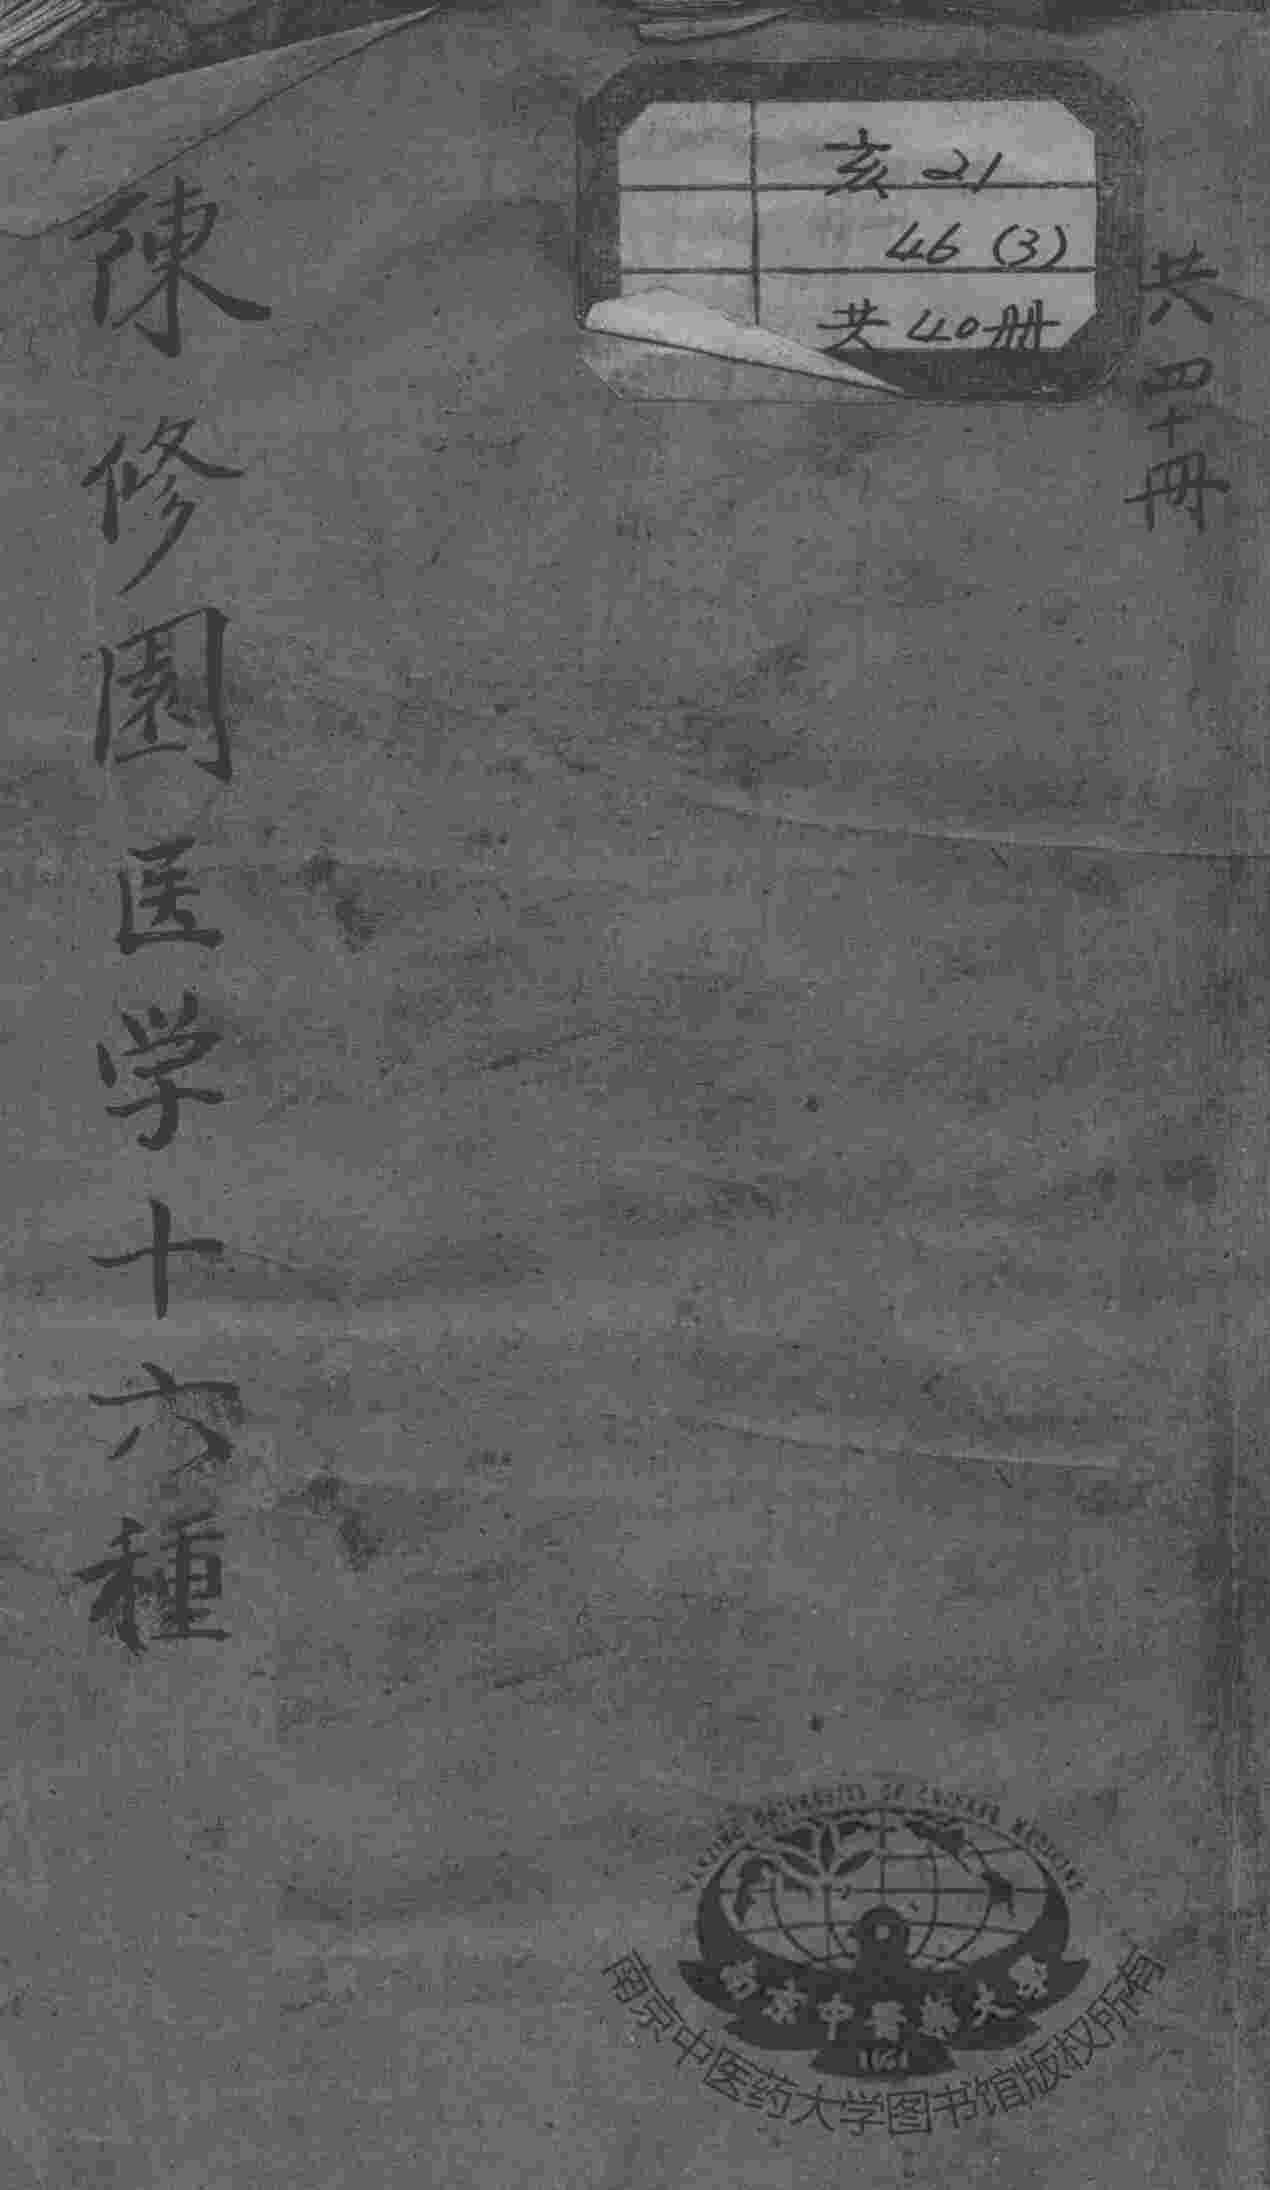 共四十冊
亥21
46(3)
共40册
陳修園医学十六種
NANJING UNIVERSITY OF CHINESE MEDICINE
南京中醫藥大學
1954
南京中医药大学图书馆版权所有